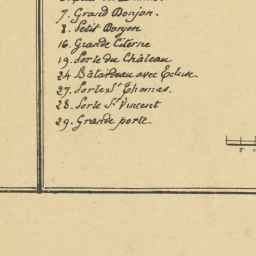 7. Grand Donjon.
8. Petit Donjon
16. Grande Citerne
19. Porte du Château
24 Batardeau avec Ecluse.
27. Porte St Thomas.
28. Porte St Vincent
29. Grande porte